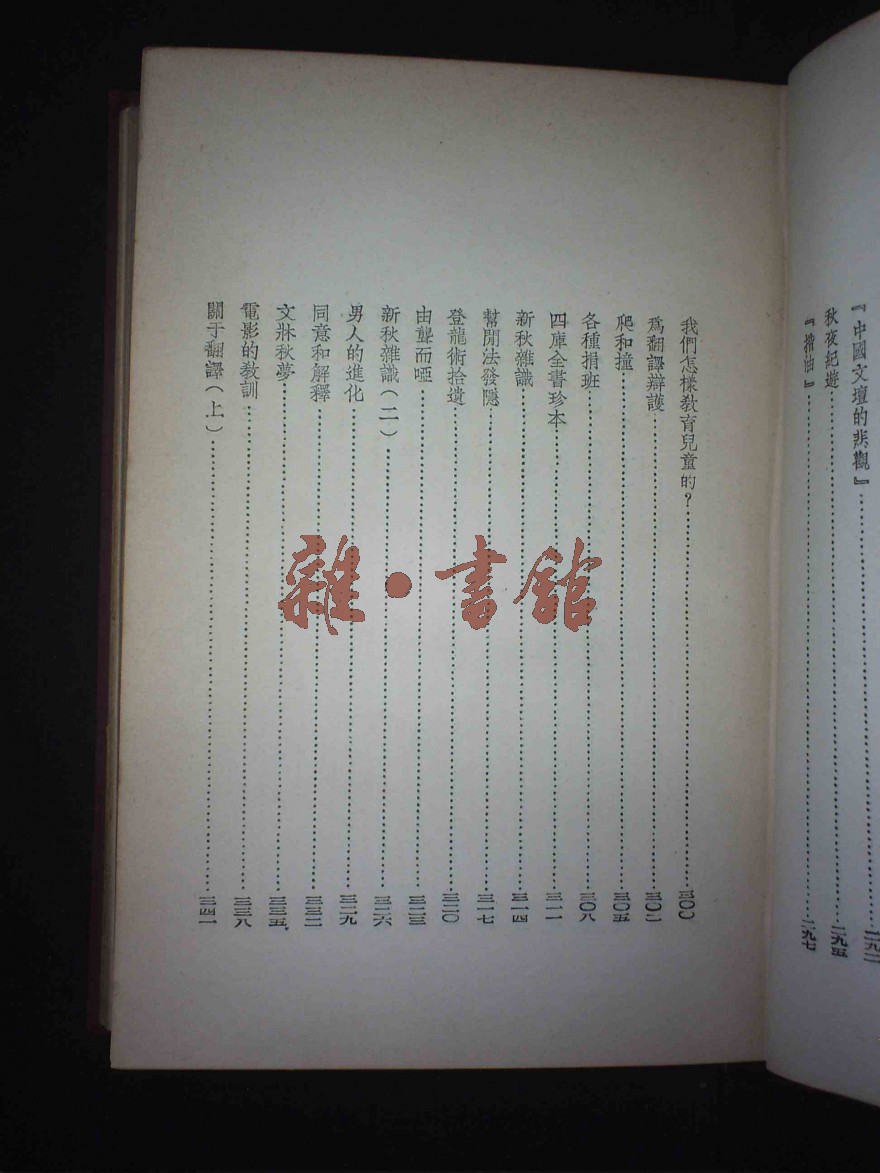 『中國文壇的悲觀』……二九二
秋夜紀遊……二九五
『揩油』……二九七
我們怎樣敎育兒童的？……三〇〇
爲翻譯辯護……三〇二
爬和撞……三〇五
各種捐班……三〇八
四庫全書珍本……三一一
新秋雜識……三一四
幫閒法發隱……三一七
登龍術拾遺……三二〇
由聾而啞……三二三
新秋雜識（二）……三二六
男人的進化……三二九
同意和解釋……三三二
文牀秋夢……三三五
電影的敎訓……三三八
關于翻譯（上）……三四一
雜·書館